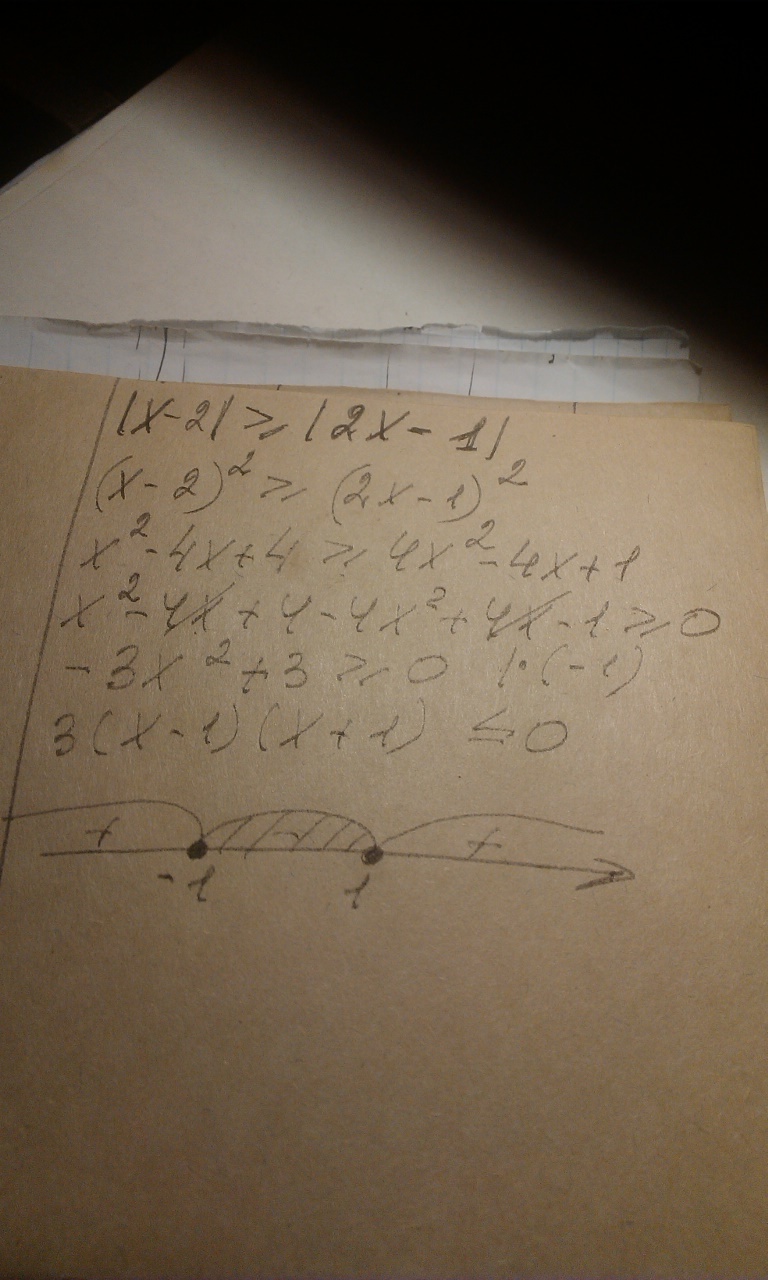 |x-2| ≥ |2x-1|
(x-2)² ≥ (2x-1)²
x²-4x+4 ≥ 4x²-4x+1
x²-4x+4-4x²+4x-1 ≥ 0
-3x²+3 ≥ 0 |·(-1)
3(x-1)(x+1) ≤ 0
+ - +
-1 1